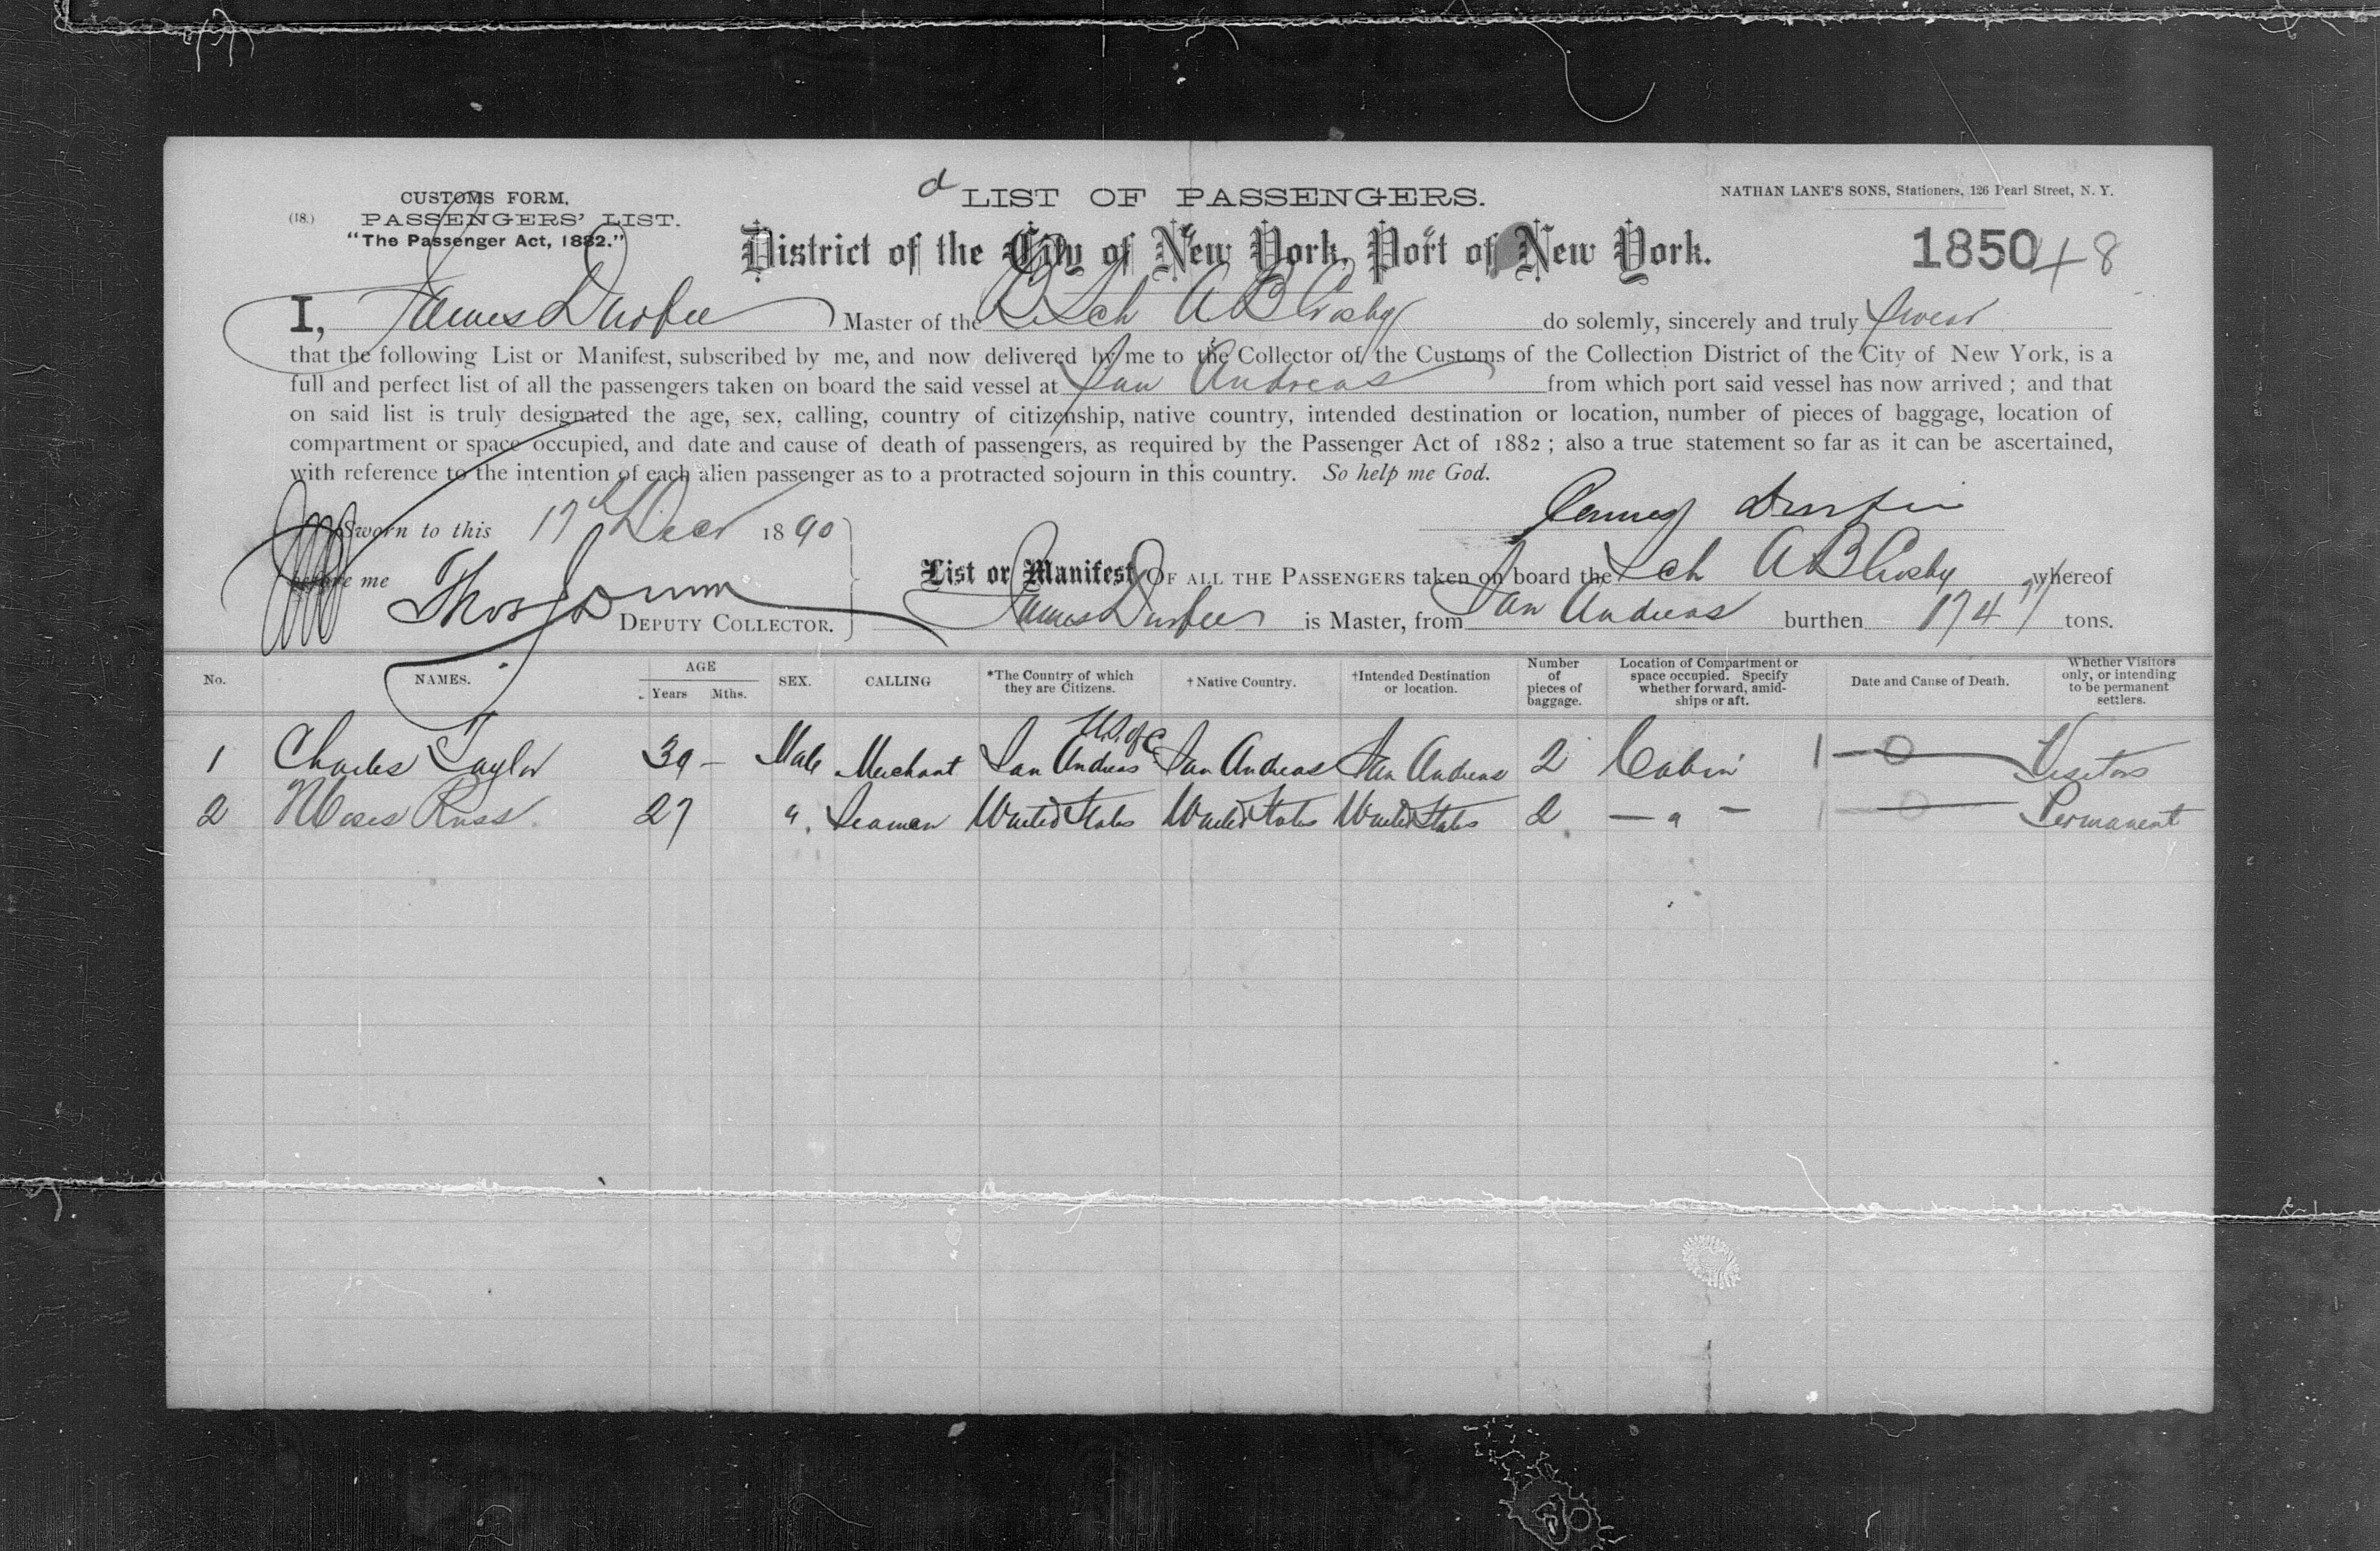 CUSTOMS FORM.
(18.) PASSENGERS' LIST.
"The Passenger Act, 1882."
d LIST OF PASSENGERS.
NATHAN LANE'S SONS, Stationers, 126 Pearl Street, N. Y.
District of the City of New York, Port of New York.
1850 + 8
I, James Durfee Master of the Sch A B Crosby do solemnly, sincerely and truly swear
that the following List or Manifest, subscribed by me, and now delivered by me to the Collector of the Customs of the Collection District of the City of New York, is a
full and perfect list of all the passengers taken on board the said vessel at San Andreas from which port said vessel has now arrived ; and that
on said list is truly designated the age, sex, calling, country of citizenship, native country, intended destination or location, number of pieces of baggage, location of
compartment or space occupied, and date and cause of death of passengers, as required by the Passenger Act of 1882 ; also a true statement so far as it can be ascertained,
with reference to the intention of each alien passenger as to a protracted sojourn in this country. So help me God.
Sworn to this 17th Decr 1890
before me Thos Dunn
DEPUTY COLLECTOR.
List or Manifest OF ALL THE PASSENGERS taken on board the Sch A B Crosby whereof
James Durfee is Master, from San Andreas burthen 174 tons.
No. NAMES. AGE Years Mths. SEX. CALLING *The Country of which they are Citizens. † Native Country. †Intended Destination or location. Number of pieces of baggage. Location of Compartment or space occupied. Specify whether forward, amid-ships or aft. Date and Cause of Death. Whether Visitors only, or intending to be permanent settlers.
1 Charles Taylor 39 – Male Merchant U.S. of C. San Andreas San Andreas San Andreas 2 Cabin 1 – 0 – Visitors
2 Moses Russ 27 " Seaman United States United States United States 2 – " – 1 – 0 – Permanent